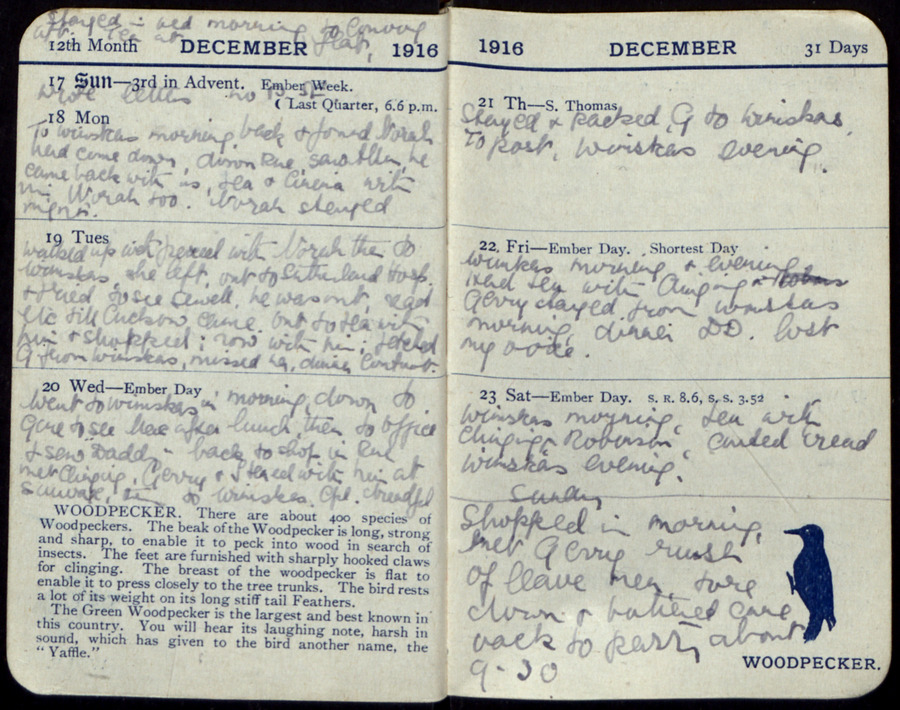 Stayed in bed morning to Convoy
12th Month DECEMBER 1916
17 Sun—3rd in Advent. Ember Week.
Wrote letters no
☾ Last Quarter, 6.6 p.m.
18 Mon
To Wimskas morning, back & found Norah
had come down, down Rue, saw Allen, he
came back with us, tea & Cinema with
him Norah too. Norah stayed
night.
19 Tues
Walked up with Norah then to
Wimskas, she left, out to Sutherland hosp.
& tried to see Sewell, he was out, read
etc till Cuckow came. out to tea with
him & shopped; row with him; fetched
G from Wimskas, missed her, dinner
20 Wed—Ember Day
Went to Wimskas in morning, down to
Gare to see after lunch, then to office
& saw Daddy - back to shop in Rue
met Clinging, Gerry & I tea'd with him at
to Wimskas. dreadful
WOODPECKER. There are about 400 species of
Woodpeckers. The beak of the Woodpecker is long, strong
and sharp, to enable it to peck into wood in search of
insects. The feet are furnished with sharply hooked claws
for clinging. The breast of the woodpecker is flat to
enable it to press closely to the tree trunks. The bird rests
a lot of its weight on its long stiff tail Feathers.
The Green Woodpecker is the largest and best known in
this country. You will hear its laughing note, harsh in
sound, which has given to the bird another name, the
" Yaffle."
1916 DECEMBER 31 Days
21 Th—S. Thomas
Stayed & packed, G to Wimskas,
To post, Wimskas evening.
22 Fri—Ember Day. Shortest Day
Wimskas morning & evening
Had tea with
Gerry changed from Wimskas
morning, dinner DD. lost
my voice.
23 Sat—Ember Day. S. R. 8.6, S. S. 3.52
Wimskas morning, tea with
Clinging & Robinson, carted bread
Wimskas evening.
Sunday
Shopped in morning,
met Gerry rush
of leave men, tore
down & came
back to party about
9-30
WOODPECKER.